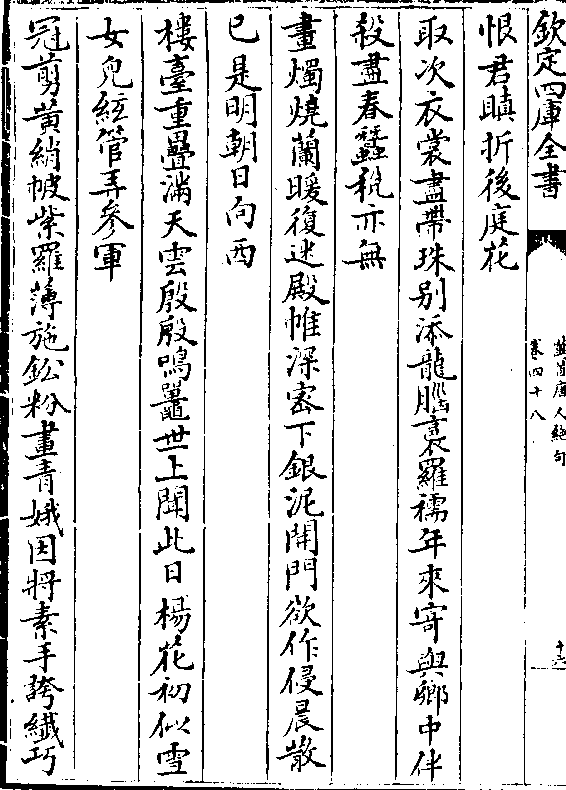 欽定四庫全書
萬首唐人絶句
卷四十八
十六
恨君瞋折後庭花
取次衣裳盡帶珠别添龍腦裛羅襦年來寄與鄉中伴
殺盡春蠶税亦無
畫燭燒蘭暖復迷殿帷深宻下銀泥開門欲作侵晨散
已是明朝日向西
樓臺重疊滿天雲殷殷鳴鼉世上聞此日楊花初似雪
女兒絃管弄參軍
冠剪黄綃帔紫羅薄施鉛粉畫青娥因將素手誇纎巧